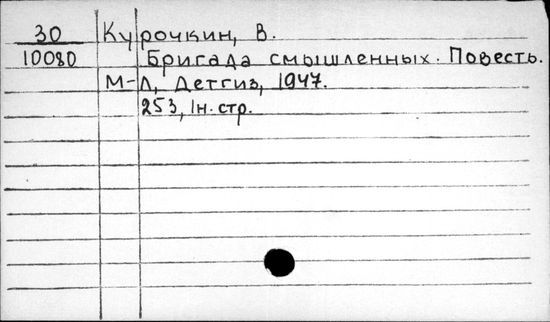 30 Курочкин, В.
10080 Бригада смышленных. Повесть.
М-Л, Детгиз, 1947.
253, 1н. стр.